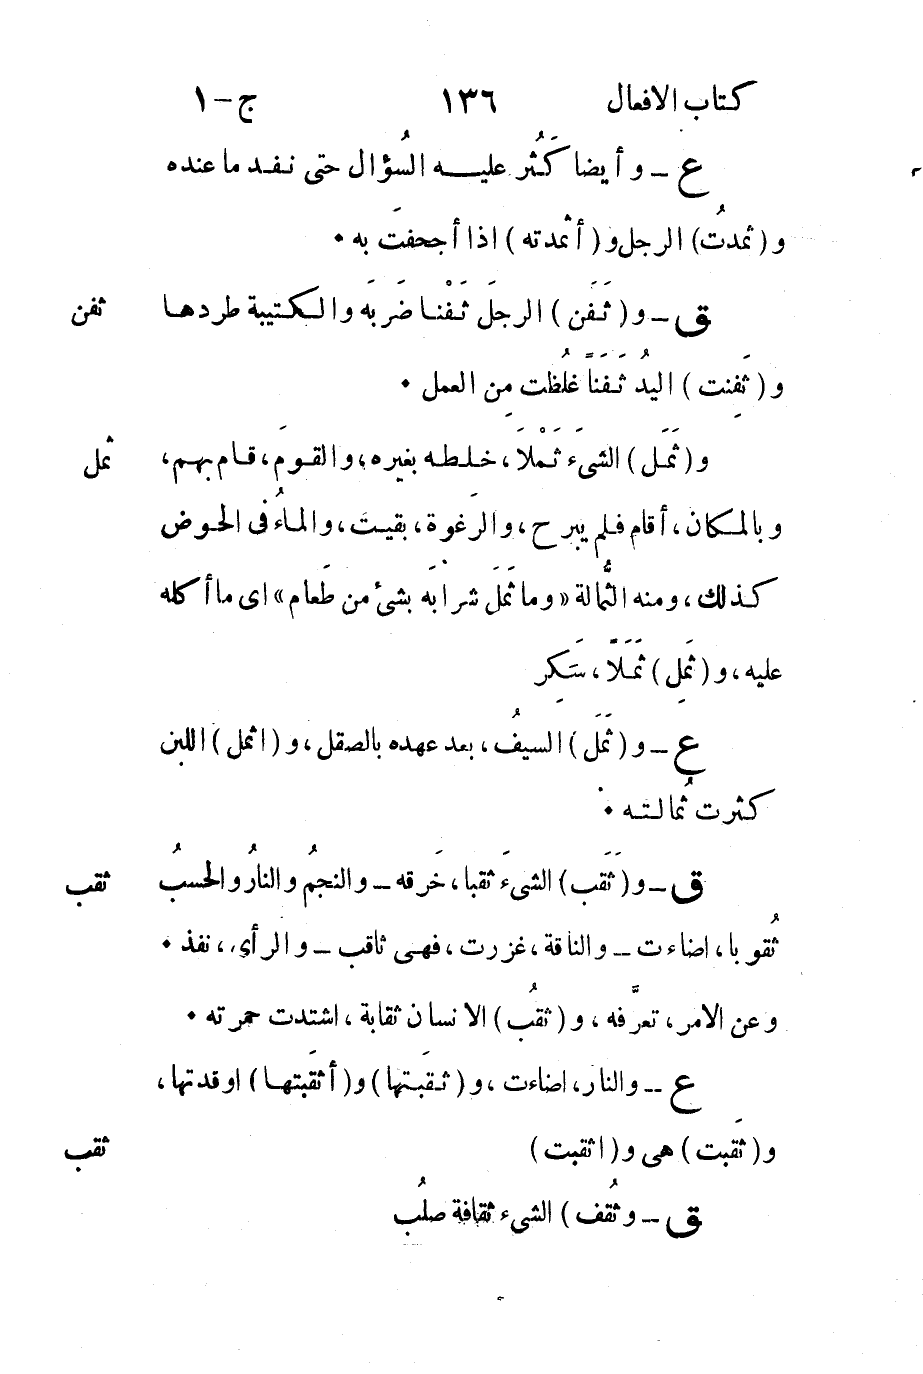 كتاب الافعال ١٣٦ ج-١
ع - و أيضا كَثُر عليه السُؤال حتى نفد ما عنده
و (ثمدتُ) الرجل و (أثمدته) اذا أجحفتَ به •
ق - و (ثَفَن) الرجلَ ثَفْنا ضَربَه والكتيبة طردها ثفن
و (ثَفِنت) اليدُ ثَفَنَّا غلُظت مِن العمل •
و (ثَمَل) الشىءَ ثَمْلا، خلطه بغيره، والقومَ، قام بهم، ثمل
وبالمكان، أقام فلم يبرح، والرَغوة، بقيت، والماءُ فى الحوض
كذلك، ومنه الثُّمالة «وما ثَمَلَ شرابَه بشئ من طَعام» اى ما أكله
عليه، و (ثَمِل) ثَمَلاً، سَكِر
ع - و (ثَمَل) السيفُ، بعد عهده بالصقل، و (اثمل) اللبن
كثرت ثُمالته •
ق - و (ثَقَب) الشىءَ ثقبا، خَرقه - والنجمُ والنارُ والحسبُ ثقب
ثُقوبا، اضاءت - والناقة، غزرت، فهى ثاقب - والرأى، نفذ •
وعن الامر، تعرَّفه، و (ثقُب) الانسان ثقابة، اشتدت حمرته •
ع - والنار، اضاءت، و (ثقبَتها) و (أثقَبتها) اوقدتها،
و (ثَقبت) هى و (اثقبت) ثقب
ق - و ثُقف) الشىء ثقافة صلُب